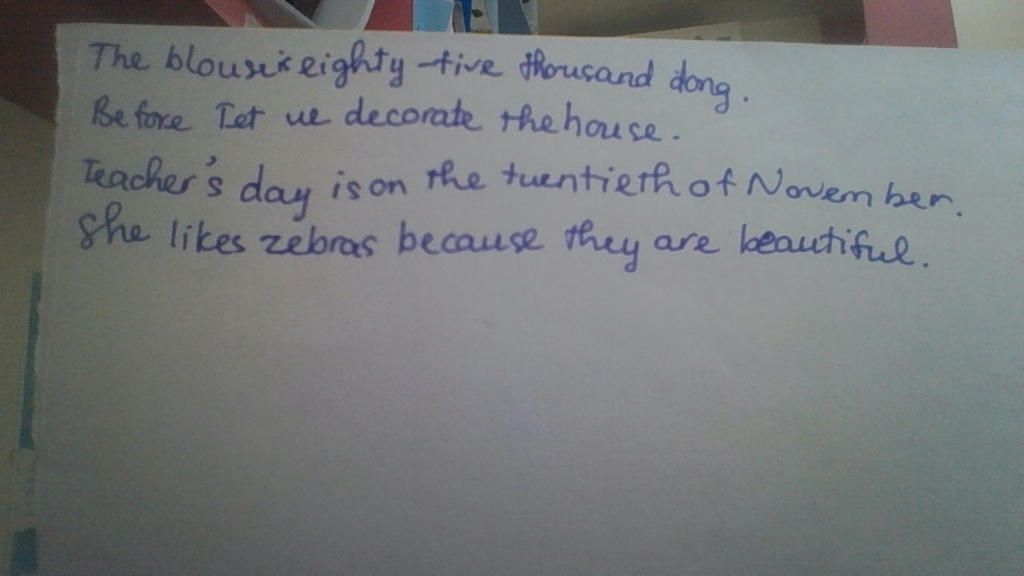 The blouse is eighty-five thousand dong.
Before Tet we decorate the house.
Teacher's day is on the twentieth of November.
She likes zebras because they are beautiful.